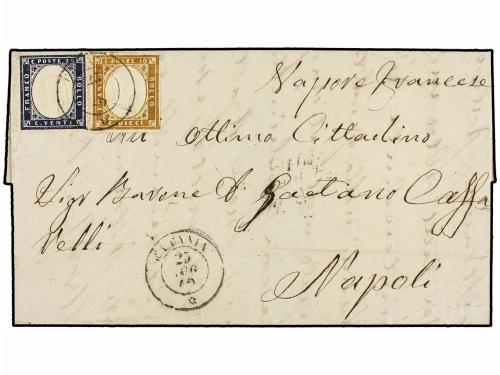 C. POSTE 20
FRANCO
BOLLO
C. VENTI
C. POSTE 10
FRANCO
BOLLO
C. DIECI
Vapore Francese
Ottimo Cittadino
Sigr Barone D. Gaetano Caffa
Velli
Napoli
CATANIA
25